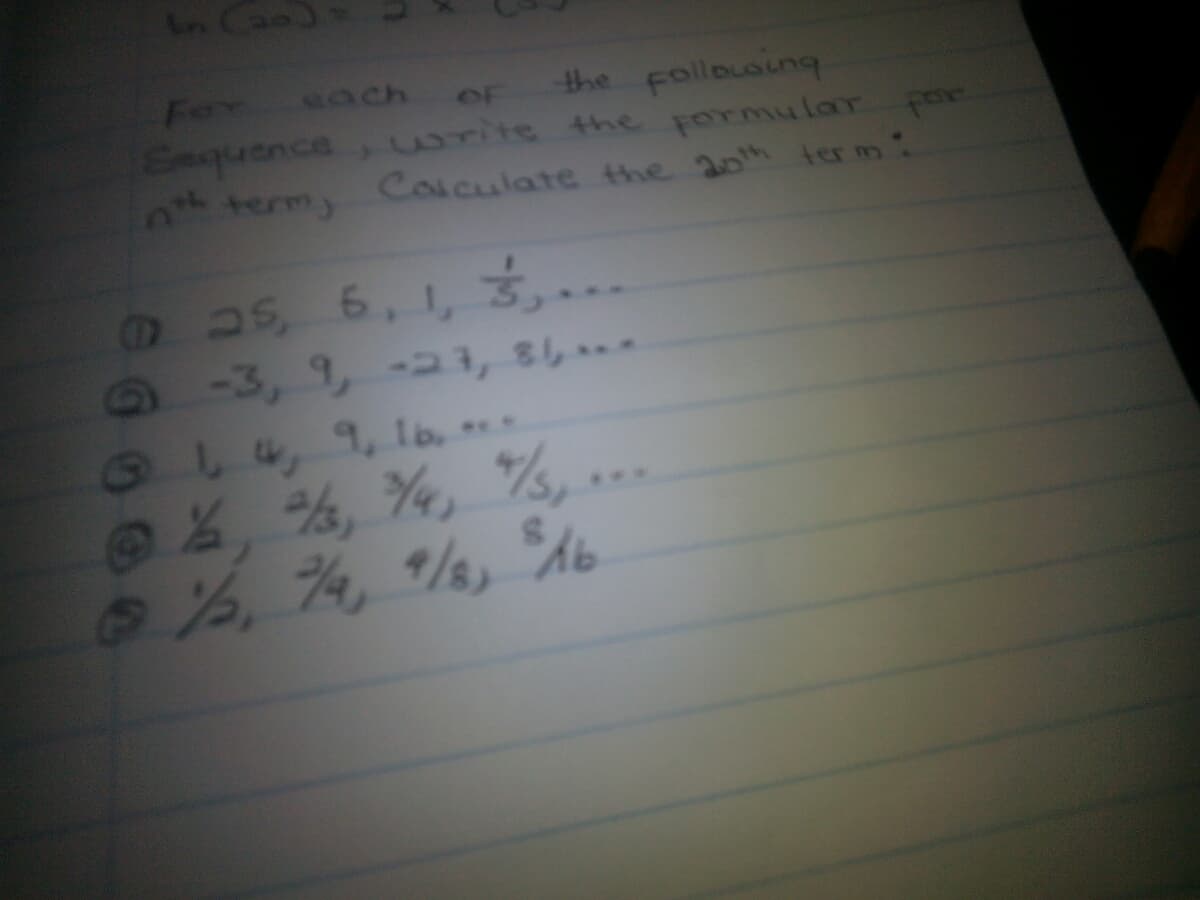 For each of the following
Sequence, write the formular for
nth term, Calculate the 20th term:
① 25, 5, 1, 1/5, ...
② -3, 9, -27, 81, ...
③ 1, 4, 9, 16, ...
④ 1/2, 2/3, 3/4, 4/5, ...
⑤ 1/2, 2/4, 4/8, 8/16